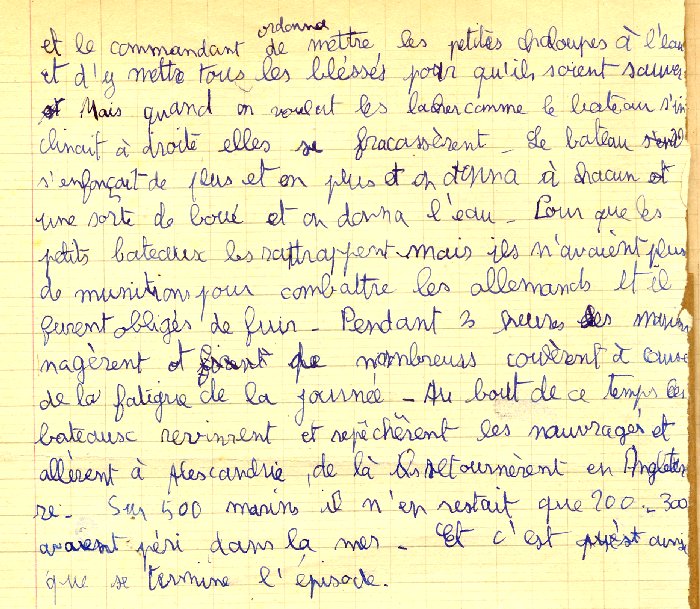 ordonna
et le commandant de mettre les petites chaloupes à l'eau
et d'y mettre tous les bléssés pour qu'ils soient sauver
et Mais quand on voulut les lacher comme le bateau s'in
clinait à droite elles se fracassèrent - Le bateau s'enf
s'enfonçait de plus et en plus et on donna à chacun et
une sorte de boué et on donna l'eau - Pour que les
petits bateaux les rattrappent mais ils n'avaient plus
de munitions pour combattre les allemands et il
furent obligés de fuir - Pendant 3 heures les marins
nagèrent et de nombreuss coulèrent à cause
de la fatigue de la journée - Au bout de ce temps les
bateaux revinrent et repêchèrent les nauvragés et
allèrent à Alescandrie, de là ils retournèrent en Angleter
re - Sur 500 marins il n'en restait que 200 - 300
avaient péri dans la mer - Et c'est ainsi
que se termine l'épisode.